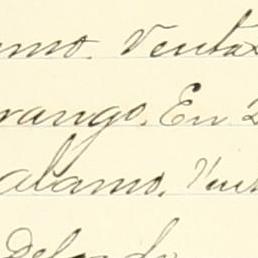 amo. Venta
rango. En 2
alamo. Vent
Delgado